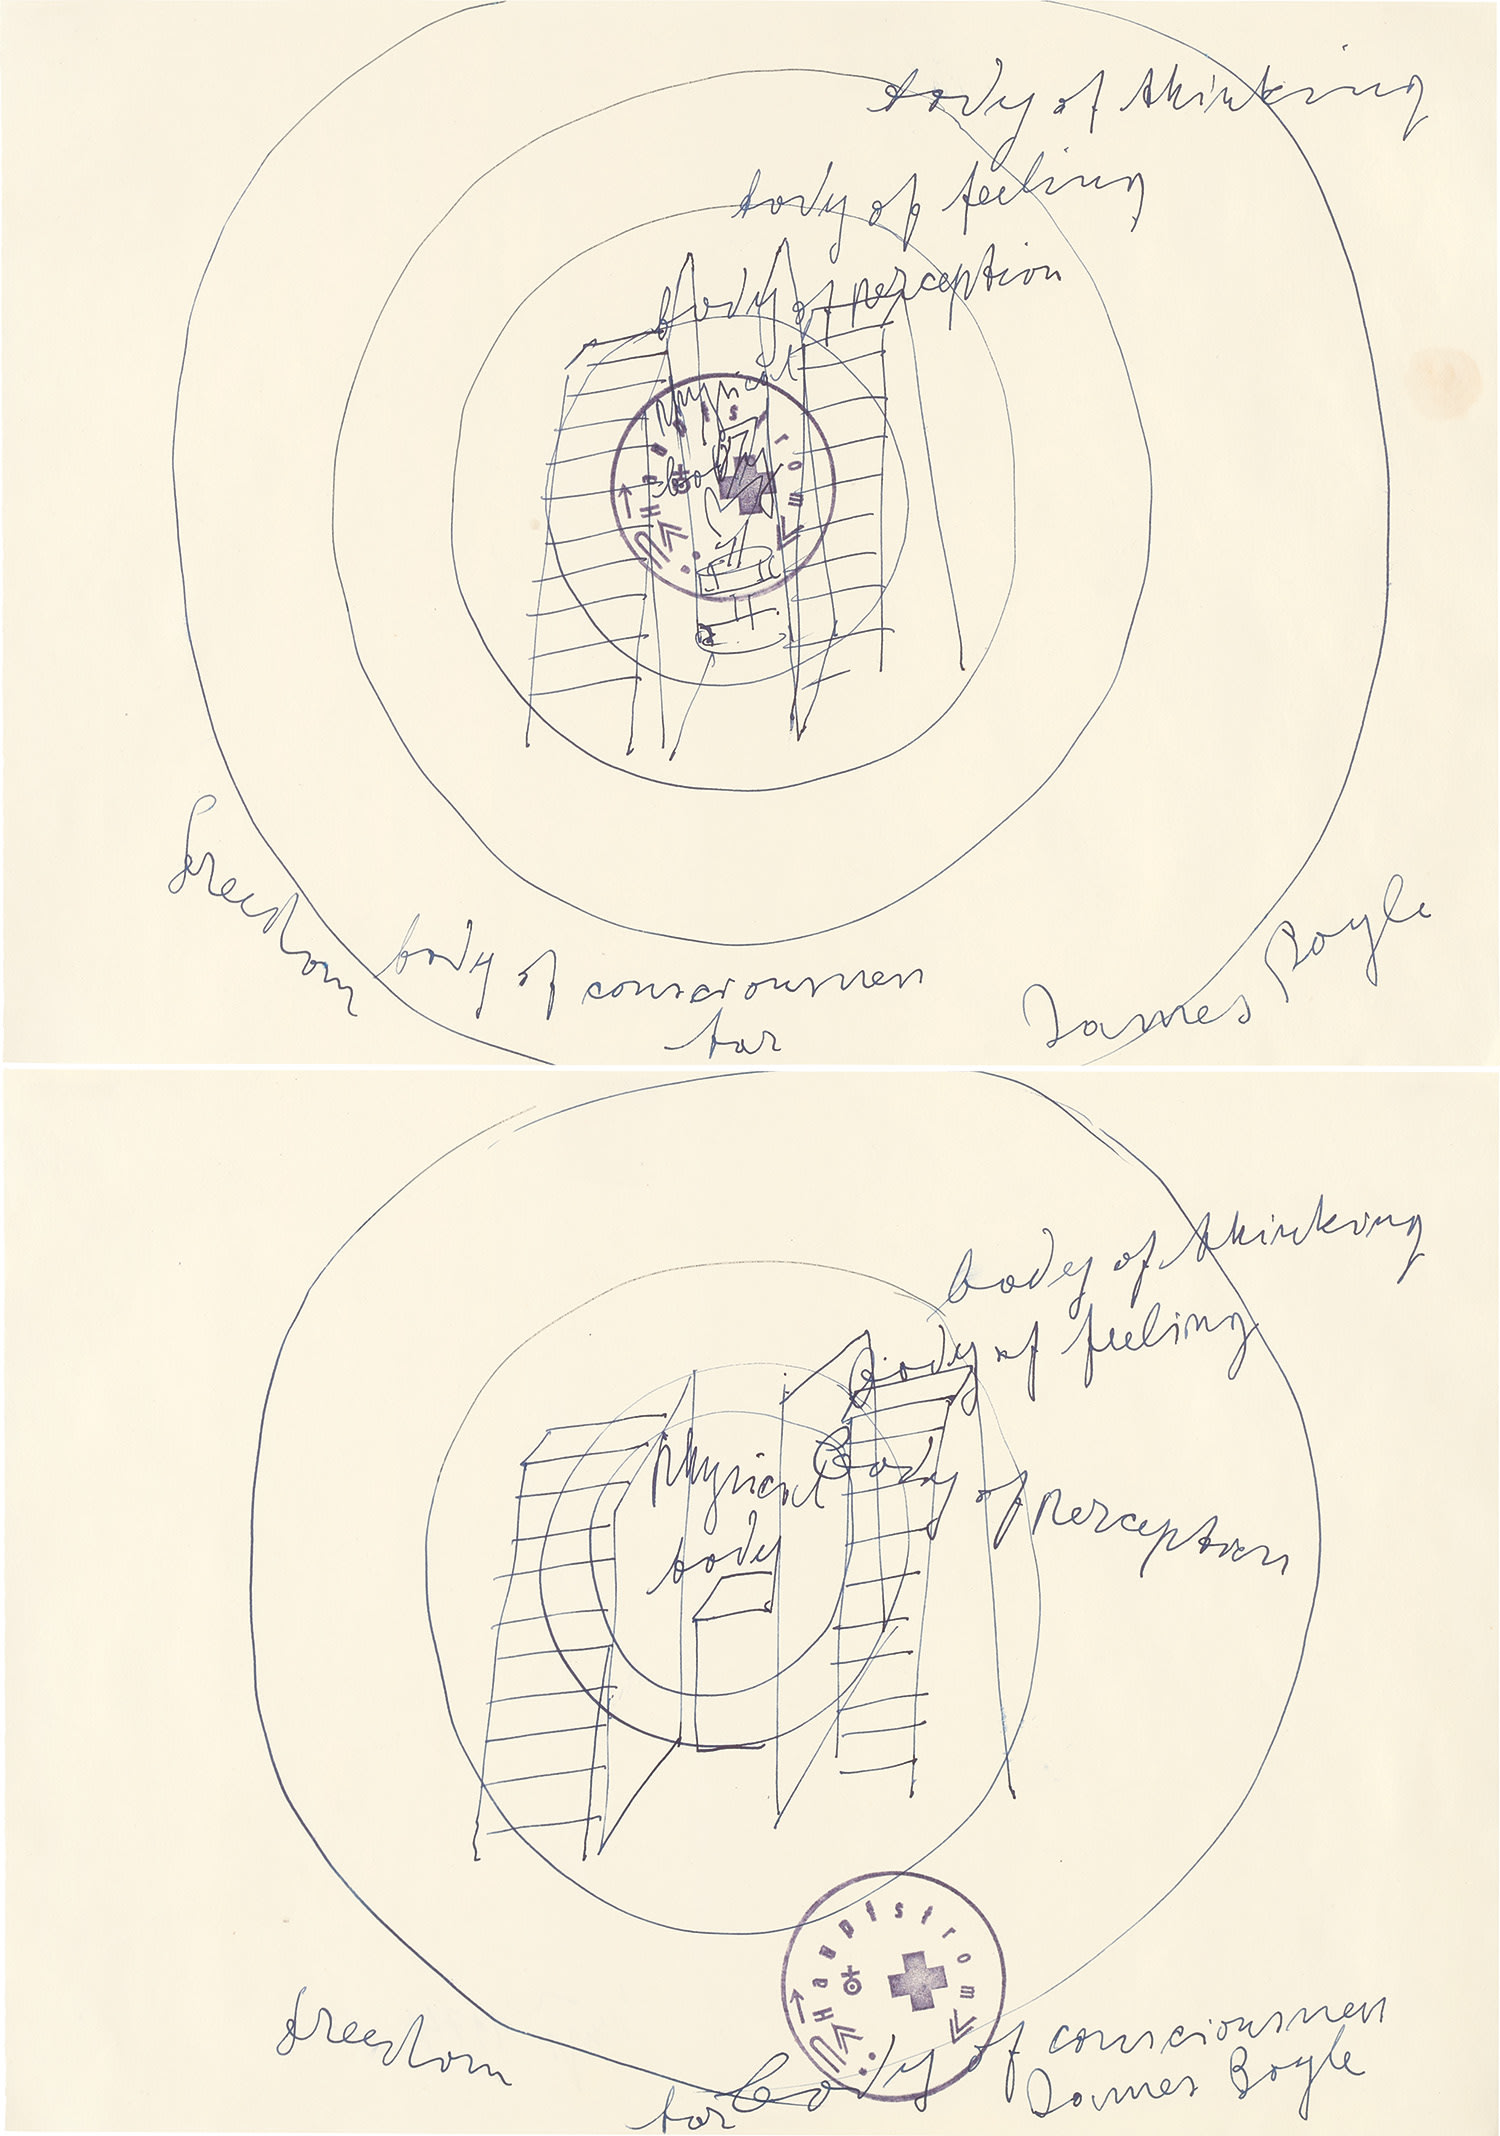 body of thinking
body of feeling
body of perception
physical
body
Hauptstrom
freedom
body of consciousness
for
James Boyle
body of thinking
body of feeling
physical
body of perception
body
Hauptstrom
freedom
body of consciousness
for
James Boyle